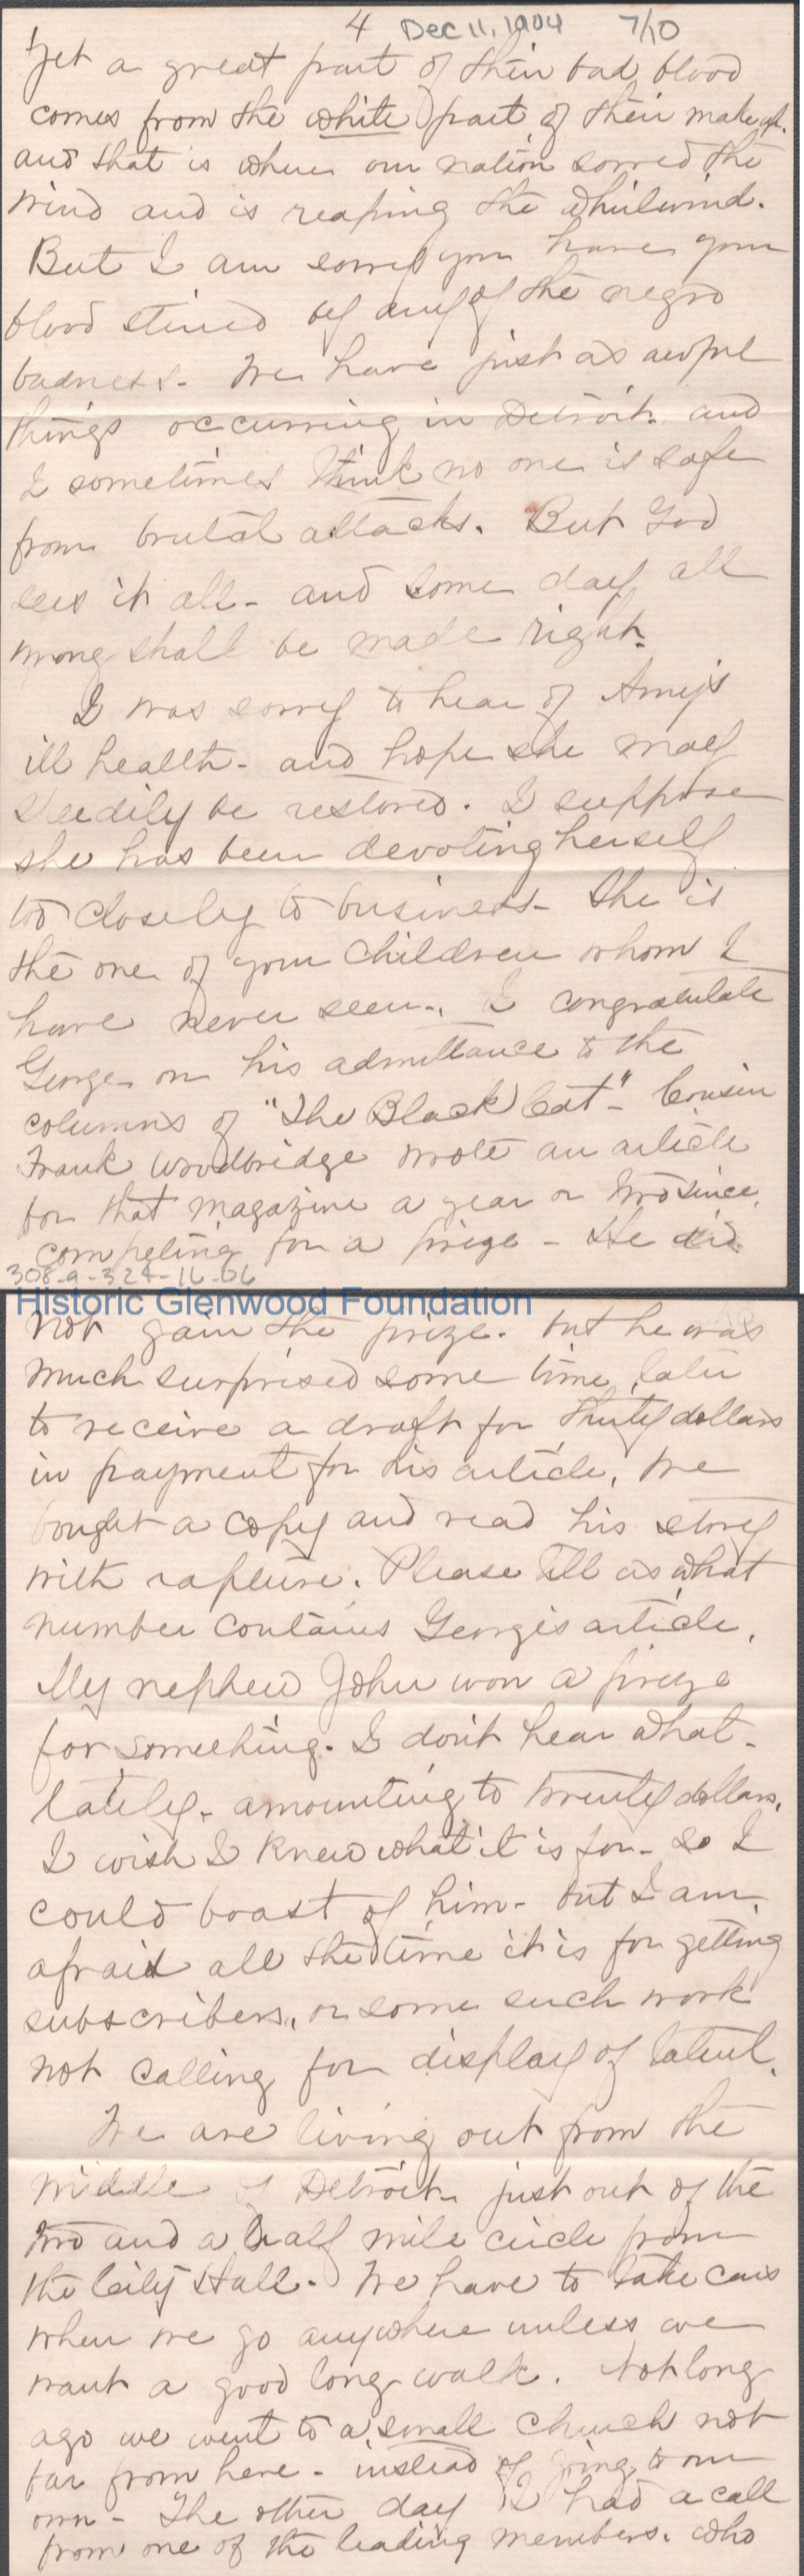 4 Dec 11, 1904 7/10
Yet a great part of their bad blood
comes from the white part of their make up.
and that is where our nation sowed the
wind and is reaping the whirlwind.
But I am sorry you have your
blood stirred by any of the negro
badness. We have just as awful
things occurring in Detroit. and
I sometimes think no one is safe
from brutal attacks. But God
sees it all - and some day all
wrong shall be made right.
I was sorry to hear of Amy's
ill health - and hope she may
speedily be restored. I suppose
she has been devoting herself
too closely to business - She is
the one of your children whom I
have never seen. I congratulate
George on his admittance to the
columns of "The Black Cat" - Cousin
Frank Woodbridge wrote an article
for that magazine a year or two since,
competing for a prize - He did
308-a-324-16-06
Historic Glenwood Foundation
not gain the prize. but he was
much surprised some time later
to receive a draft for thirty dollars
in payment for his article. We
bought a copy and read his story
with rapture. Please tell us what
number contains George's article.
My nephew John won a prize
for something. I don't hear what -
lately - amounting to twenty dollars.
I wish I knew what it is for - so I
could boast of him - but I am
afraid all the time it is for getting
subscribers, or some such work
not calling for display of talent.
We are living out from the
middle of Detroit. just out of the
two and a half mile circle from
the City Hall. We have to take cars
when we go anywhere unless we
want a good long walk. Not long
ago we went to a small church not
far from here - instead of going to our
own - The other day I had a call
from one of the leading members. who